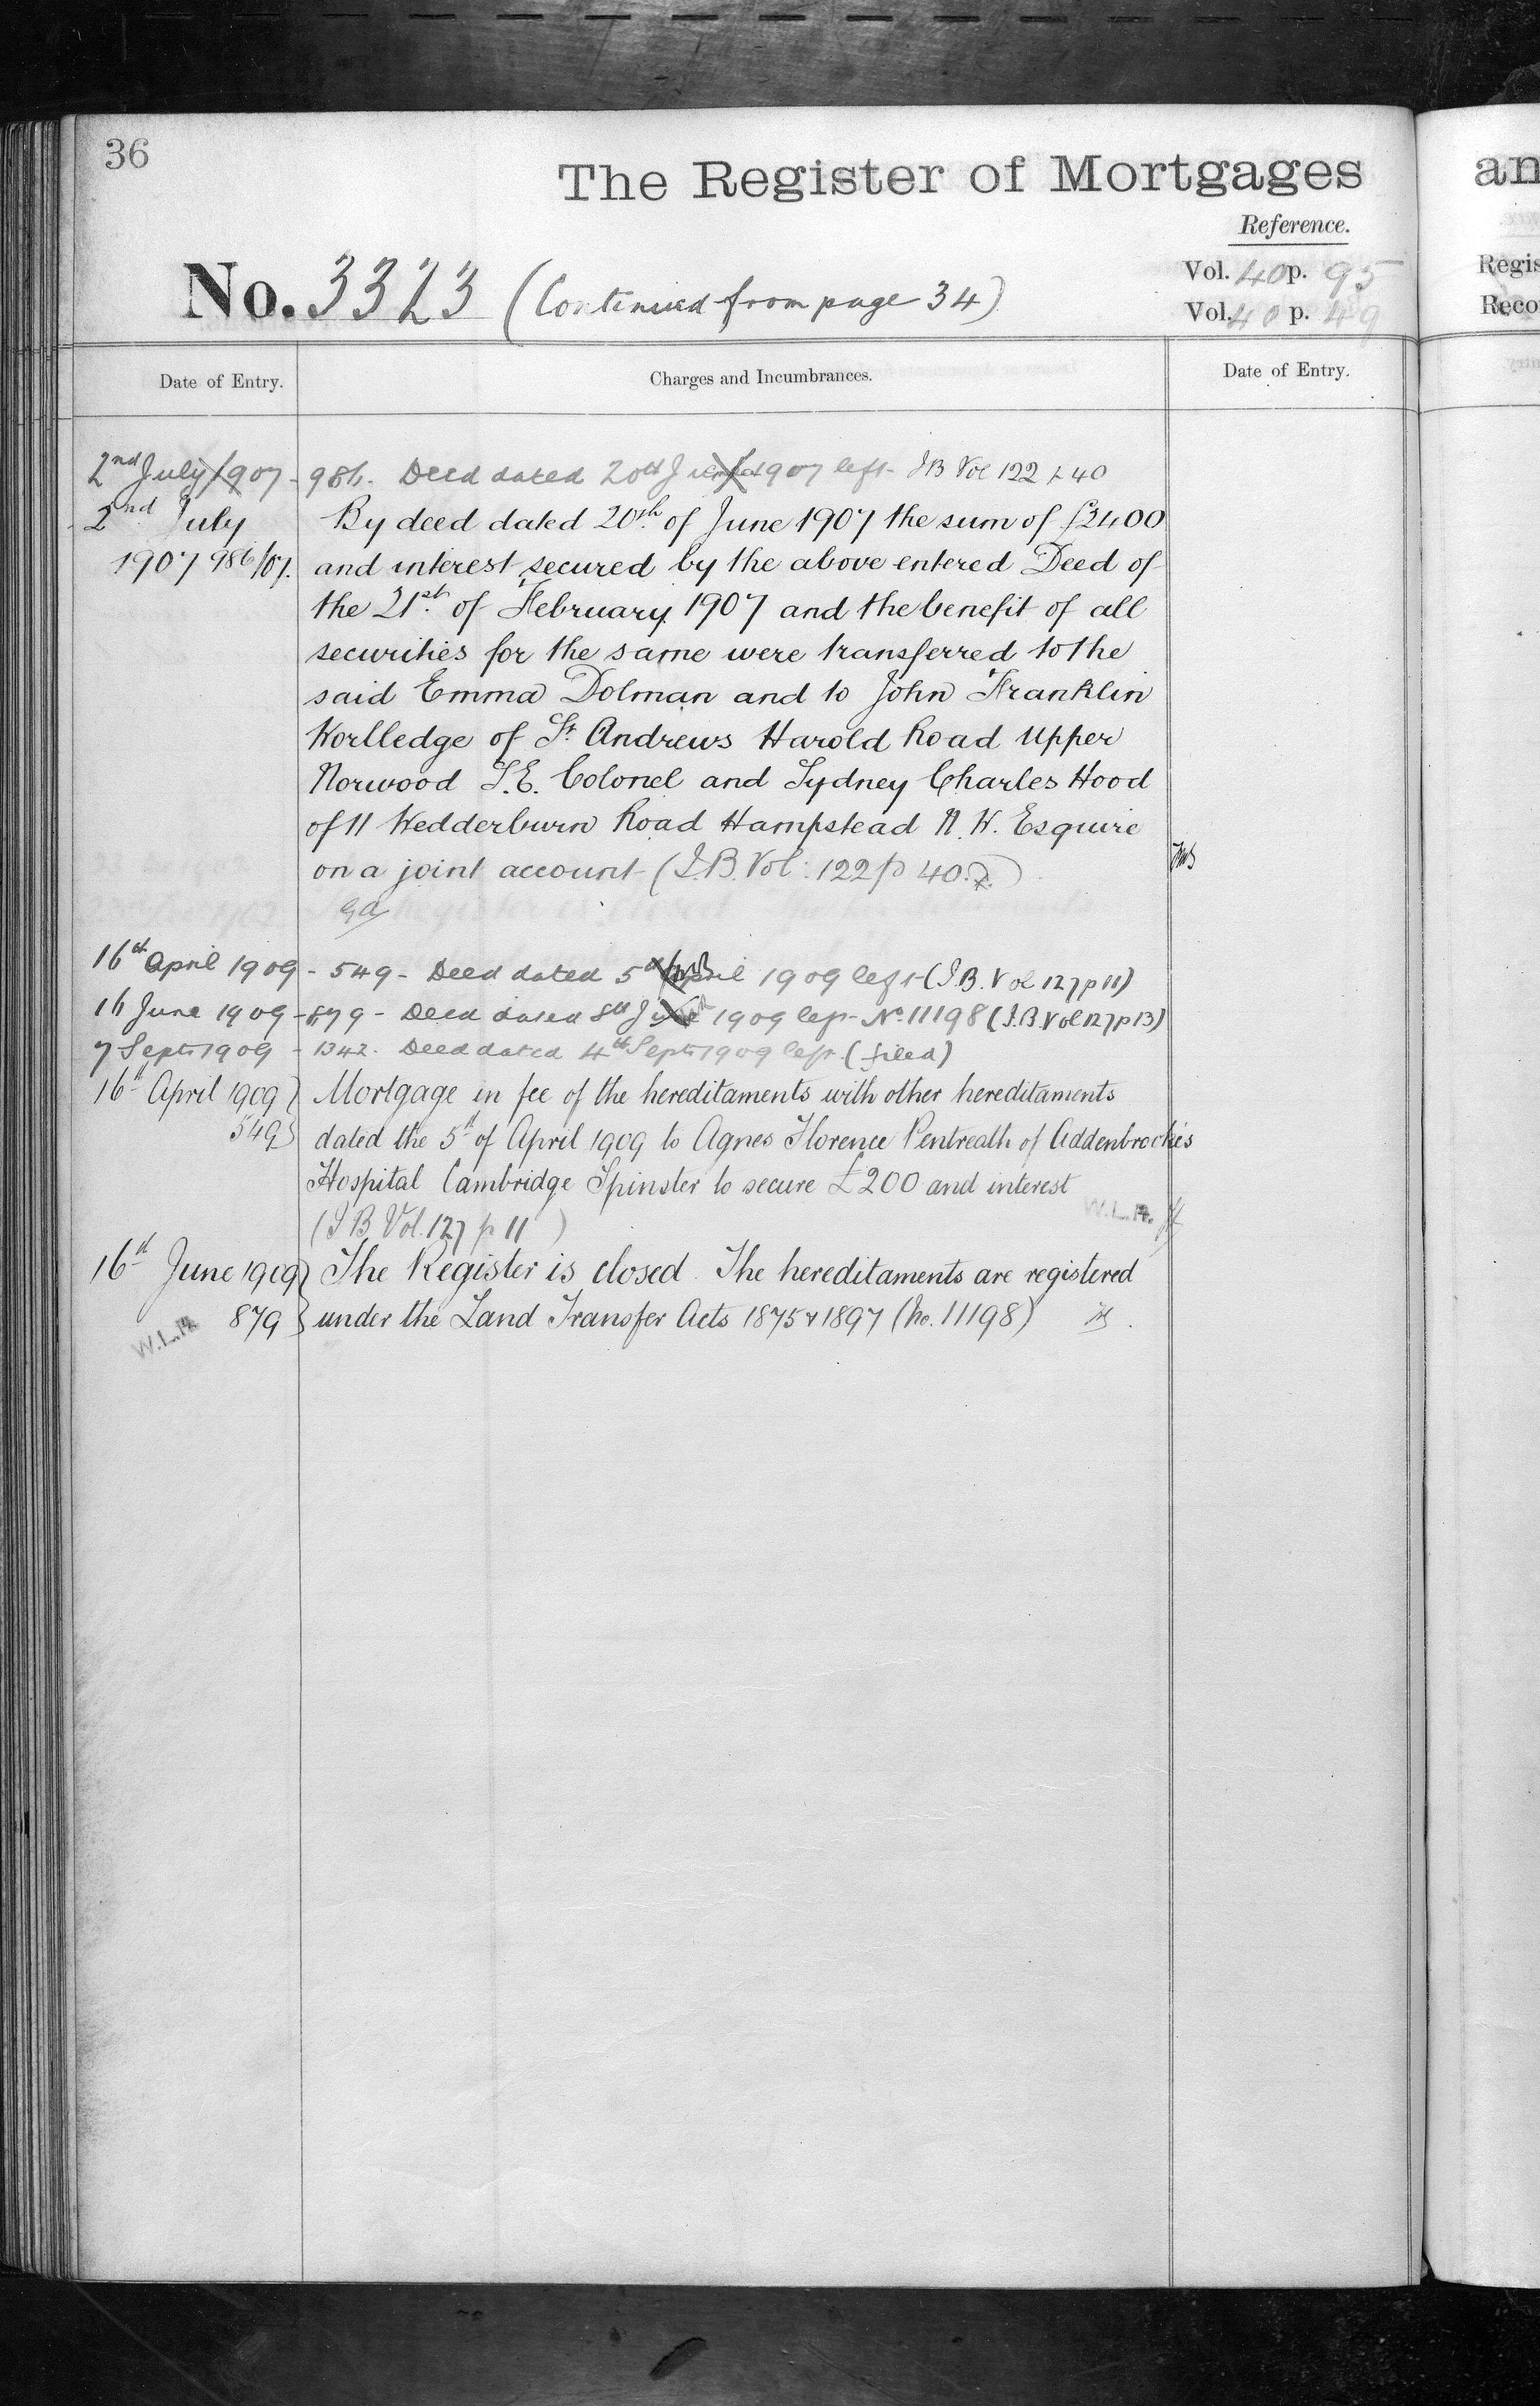 36
The Register of Mortgages
an
Reference.
No. 3323 (Continued from page 34)
Vol. 40 p. 95
Vol. 40 p. 49
Regis
Reco
Date of Entry.
Charges and Incumbrances.
Date of Entry.
2nd July 1907 - 986. Deed dated 20th June 1907 left I B Vol 122 p 40
2nd July By deed dated 20th of June 1907 the sum of £2400
1907 986/07. and interest secured by the above entered Deed of
the 21st of February 1907 and the benefit of all
securities for the same were transferred to the
said Emma Dolman and to John Franklin
Worlledge of St Andrews Harold Road Upper
Norwood S.E. Colonel and Sydney Charles Hood
of 11 Wedderburn Road Hampstead N.W. Esquire
on a joint account (I.B. Vol: 122 p 40.)
16th April 1909 - 549 - Deed dated 5th April 1909 left (I.B. Vol 127 p 11)
16 June 1909 - 879 - Deed dated 8th June 1909 left - No. 11198 (I.B. Vol 127 p 13)
7 Sept. 1909 - 1342. Deed dated 4th Sept. 1909 left (filed)
16th April 1909 } Mortgage in fee of the hereditaments with other hereditaments
549 } dated the 5th of April 1909 to Agnes Florence Pentreath of Addenbrooke's
Hospital Cambridge Spinster to secure £200 and interest
W.L.A.
(I B Vol. 127 p 11)
16th June 1909 } The Register is closed. The hereditaments are registered
879 } under the Land Transfer Acts 1875 & 1897 (No. 11198)
W.L.A.